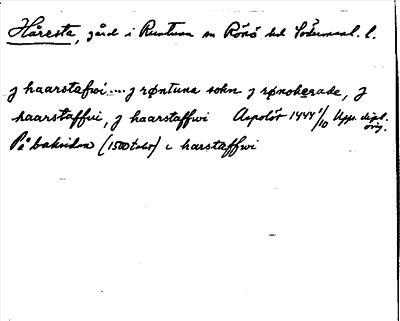 Håresta, gård i Runtuna sn Rönö hd Södermanl. l.
j haarstafwi .... j røntuna sokn j rønoherade, j
haarstaffui, j haarstaffwi Aspolör 1444 1/10 Upps. dipl. orig.
På baksidan (1500-talet) i harstaffwi